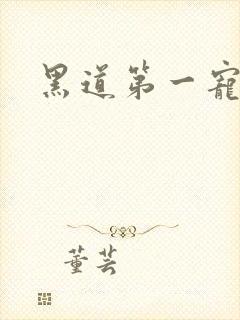 黑道第一寵
董芸